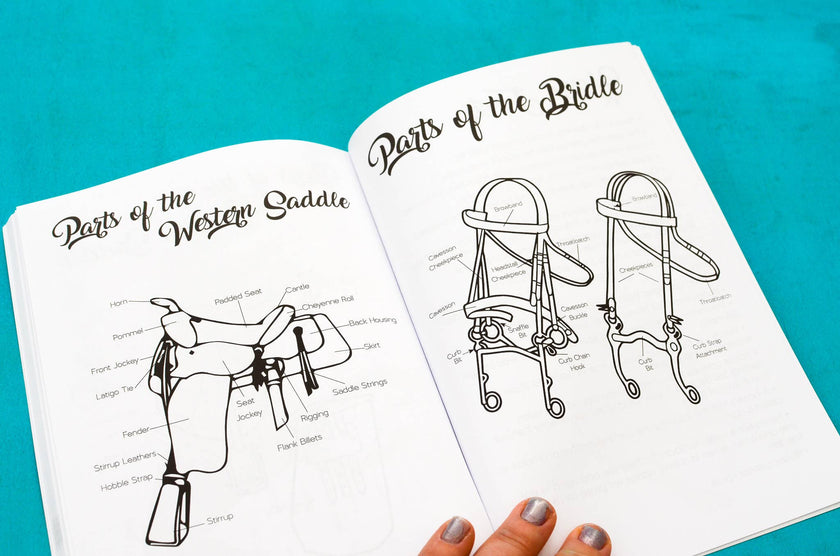 Parts of the
Western Saddle
Horn
Padded Seat
Cantle
Cheyenne Roll
Pommel
Back Housing
Front Jockey
Skirt
Latigo Tie
Seat
Jockey
Saddle Strings
Rigging
Fender
Flank Billets
Stirrup Leathers
Hobble Strap
Stirrup
Parts of the Bridle
Browband
Cavesson
Cheekpiece
Headstall
Cheekpiece
Throatlatch
Cavesson
Snaffle
Bit
Cavesson
Buckle
Curb
Bit
Curb Chain
Hook
Browband
Cheekpieces
Throatlatch
Curb
Bit
Curb Strap
Attachment